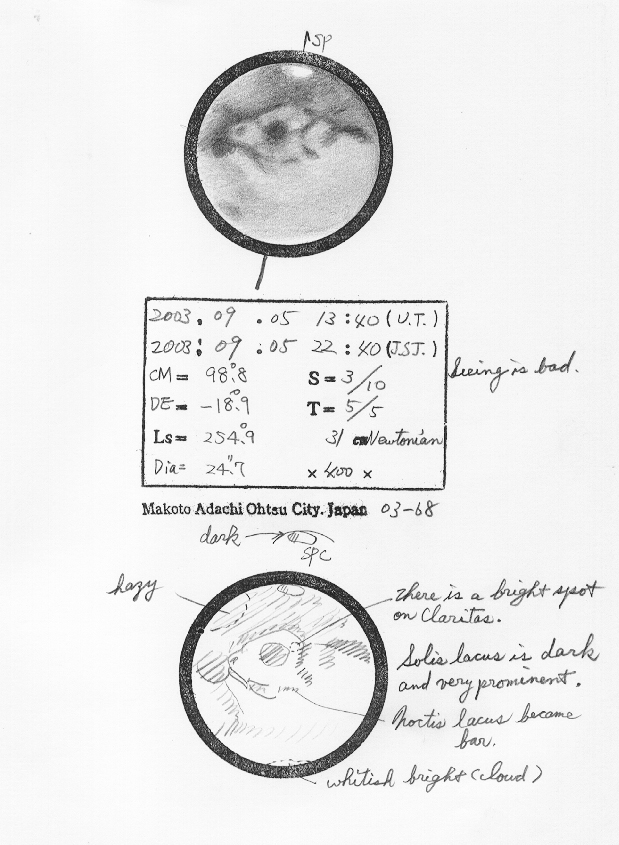 SP
2003. 09 .05 13:40 (U.T.)
2003: 09 :05 22:40 (J.S.T.)
CM= 98.°8 S=3/10
DE= -18.°9 T=5/5
Ls= 254.°9 31 cm Newtonian
Dia= 24."7 × 400 ×
Seeing is bad.
Makoto Adachi Ohtsu City. Japan 03-68
dark
SPC
hazy
There is a bright spot
on Claritas.
Solis lacus is dark
and very prominent.
Noctis lacus became
bar.
whitish bright (cloud)